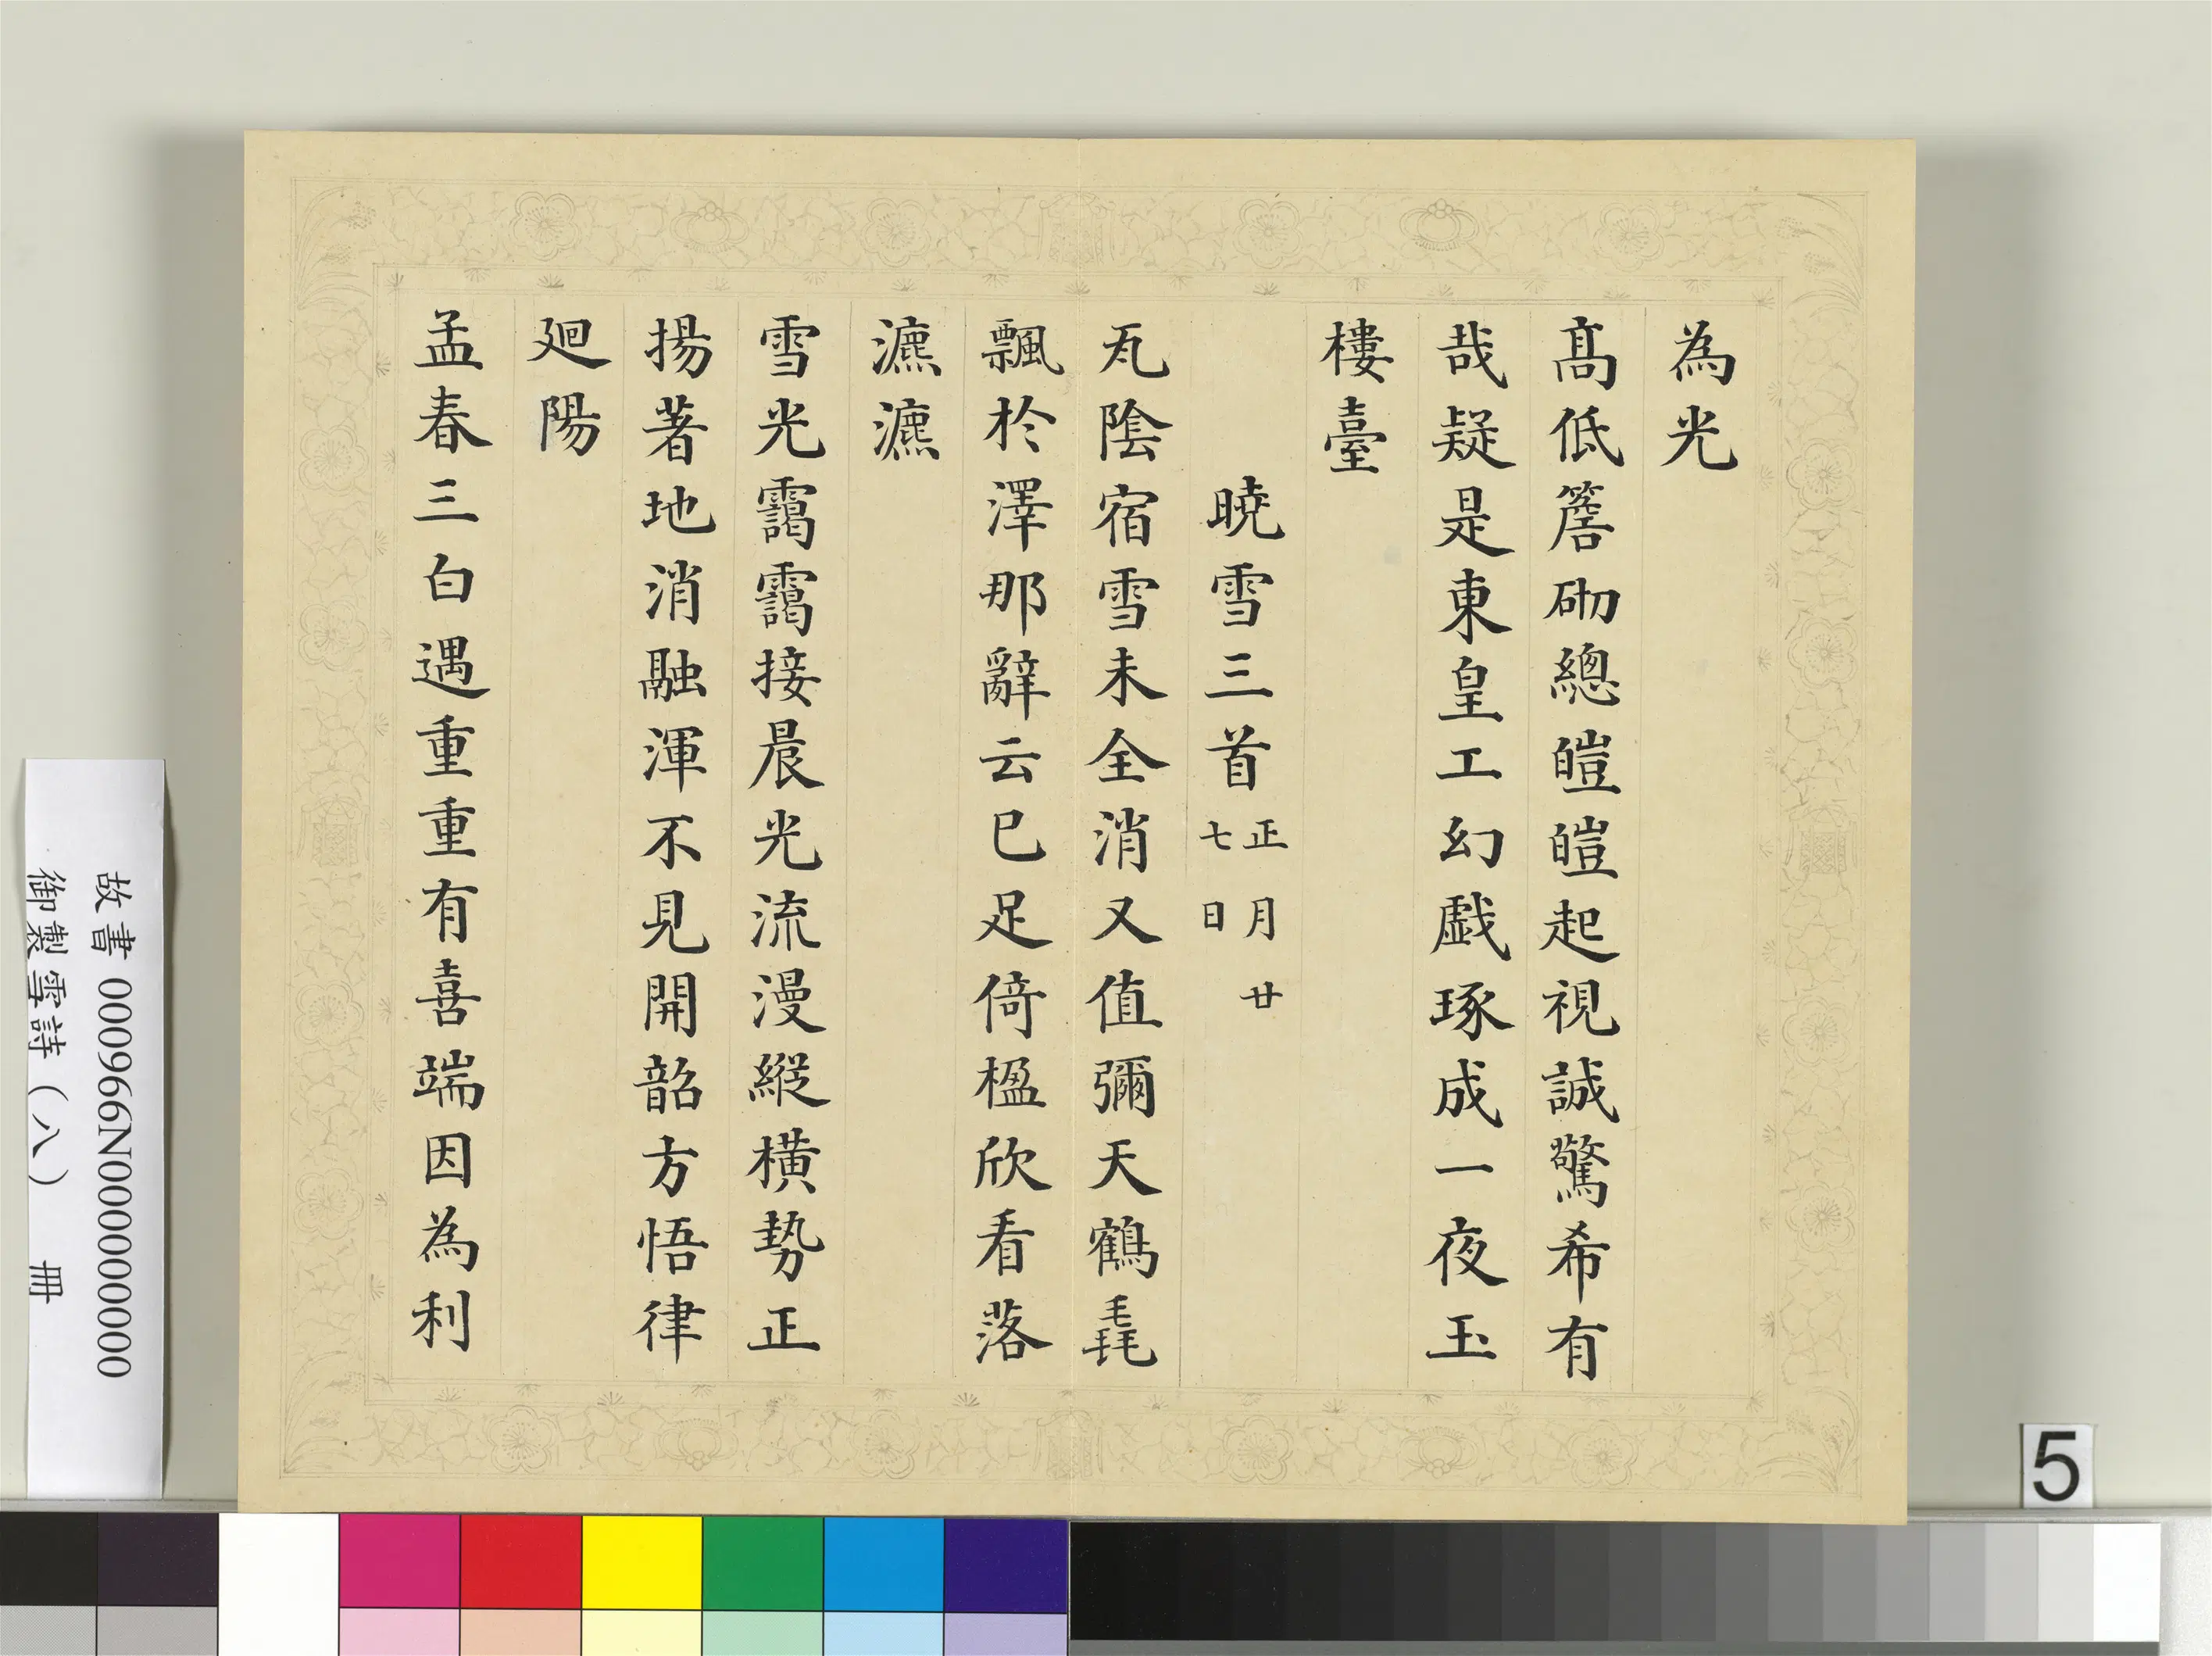 為光
髙低簷砌總皚皚起視誠驚希有
哉疑是東皇工幻戱琢成一夜玉
樓臺
曉雪三首正月廿七日
瓦陰宿雪未全消又值彌天鶴毳
飄於澤那辭云已足倚楹欣看落
瀌瀌
雪光靄靄接晨光流漫縱橫勢正
揚著地消融渾不見開韶方悟律
廻陽
孟春三白遇重重有喜端因為利
故書 000966N000000000
御製雪詩(八) 冊
5